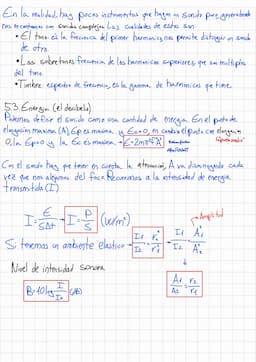 En la realidad, hay pocos instrumentos que hagan un sonido puro, generalmente
nos encontramos con sonidos complejos. Las cualidades de estos son:
• El tono: es la frecuencia del primer harmonico, nos permite distinguir un sonido
de otro.
• Los sobretonos: frecuencia de los harmonicos superiores que son multiplos
del tono
• Timbre: espectro de frecuencia, es la gama de harmonicos que tiene.
5.3 Energia (el decibelo)
Podemos definir el sonido como una cantidad de energia. En el punto de
elongacion maxima (A) Ep es maxima y Ec=0, en cambio el punto con elongacion
0, la Ep=0 y la Ec es maxima → E=2mπ²f²A²
Con el sonido hay que tener en cuenta la atenuacion, A va disminuyendo cada
vez que nos alejamos del foco. Recurrimos a la intensidad de energia
transmitida (I)
I = E/SΔt → I = P/S (W/m²)
Amplitud
Si tenemos un ambiente elastico → I1/I2 = r2²/r1² I1/I2 = A1²/A2²
Nivel de intensidad sonora
B=10log I/I0 (dB)
A1/A2 = r2/r1